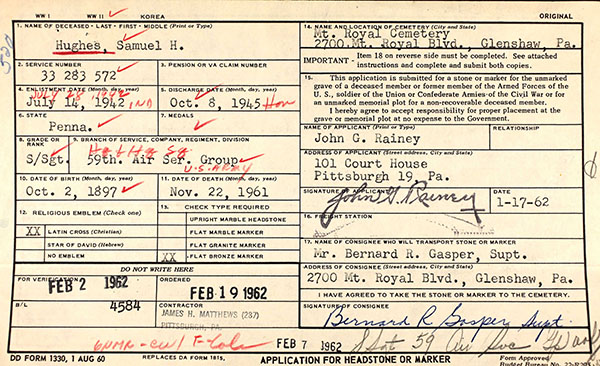 WW I WW II KOREA ORIGINAL
1. NAME OF DECEASED - LAST - FIRST - MIDDLE (Print or Type)
Hughes, Samuel H.
2. SERVICE NUMBER
33 283 572
3. PENSION OR VA CLAIM NUMBER
4. ENLISTMENT DATE (Month, day, year)
July 28, 1942
July 14, 1942 IND
5. DISCHARGE DATE (Month, day, year)
Oct. 8, 1945 Hon
6. STATE
Penna.
7. MEDALS
8. GRADE OR RANK
S/Sgt.
9. BRANCH OF SERVICE, COMPANY, REGIMENT, DIVISION
Hq + Hq Sq
59th. Air Ser. Group
U.S. ARMY
10. DATE OF BIRTH (Month, day, year)
Oct. 2, 1897
11. DATE OF DEATH (Month, day, year)
Nov. 22, 1961
12. RELIGIOUS EMBLEM (Check one)
XX LATIN CROSS (Christian)
STAR OF DAVID (Hebrew)
NO EMBLEM
13. CHECK TYPE REQUIRED
UPRIGHT MARBLE HEADSTONE
FLAT MARBLE MARKER
FLAT GRANITE MARKER
XX FLAT BRONZE MARKER
DO NOT WRITE HERE
FOR VERIFICATION
FEB 2 1962
ORDERED
FEB 19 1962
B/L
4584
CONTRACTOR
JAMES H. MATTHEWS (287)
PITTSBURGH, PA.
14. NAME AND LOCATION OF CEMETERY (City and State)
Mt. Royal Cemetery
2700 Mt. Royal Blvd., Glenshaw, Pa.
IMPORTANT - Item 18 on reverse side must be completed. See attached
instructions and complete and submit both copies.
15. This application is submitted for a stone or marker for the unmarked
grave of a deceased member or former member of the Armed Forces of the
U. S., soldier of the Union or Confederate Armies of the Civil War or for
an unmarked memorial plot for a non-recoverable deceased member.
I hereby agree to accept responsibility for proper placement at the
grave or memorial plot at no expense to the Government.
NAME OF APPLICANT (Print or Type)
John G. Rainey
RELATIONSHIP
ADDRESS OF APPLICANT (Street address, City and State)
101 Court House
Pittsburgh 19, Pa.
SIGNATURE OF APPLICANT
John G. Rainey
DATE
1-17-62
16. FREIGHT STATION
17. NAME OF CONSIGNEE WHO WILL TRANSPORT STONE OR MARKER
Mr. Bernard R. Gasper, Supt.
ADDRESS OF CONSIGNEE (Street address, City and State)
2700 Mt. Royal Blvd., Glenshaw, Pa.
I HAVE AGREED TO TAKE THE STONE OR MARKER TO THE CEMETERY.
SIGNATURE OF CONSIGNEE
Bernard R Gasper Supt.
FEB 7 1962
S Sgt 59 Air Svc
DD FORM 1330, 1 AUG 60 REPLACES DA FORM 1815, APPLICATION FOR HEADSTONE OR MARKER
Form Approved
Budget Bureau No.